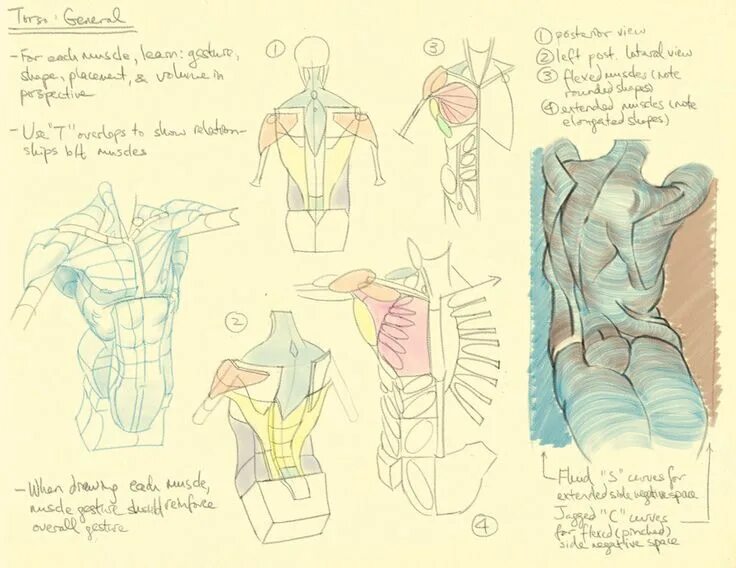 Torso: General
- For each muscle, learn: gesture,
shape, placement, & volume in
perspective
- Use "T" overlaps to show relation-
ships b/t muscles
①
③
① posterior view
② left post. lateral view
③ flexed muscles (note
rounded shapes)
④ extended muscles (note
elongated shapes)
②
④
- When drawing each muscle,
muscle gesture should reinforce
overall gesture
Fluid "S" curves for
extended side negative space
Jagged "C" curves
for flexed (pinched)
side negative space